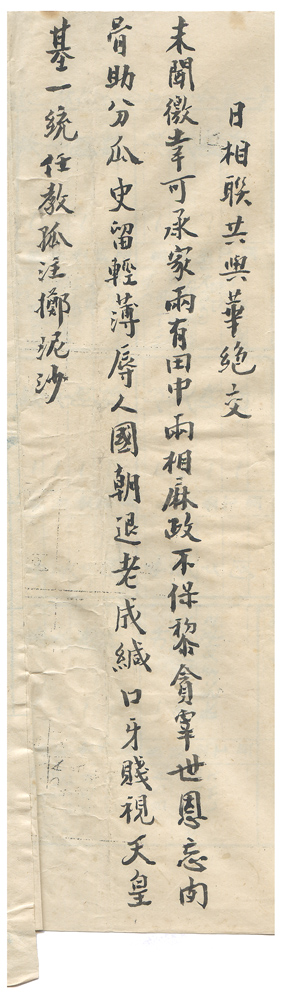 日相聯共與華絕交
未聞徼幸可承家兩有田中兩相麻政不保黎貪宰世恩忘肉
骨助分瓜史留輕薄辱人國朝退老成緘口牙賤視天皇
基一統任教孤注擲泥沙